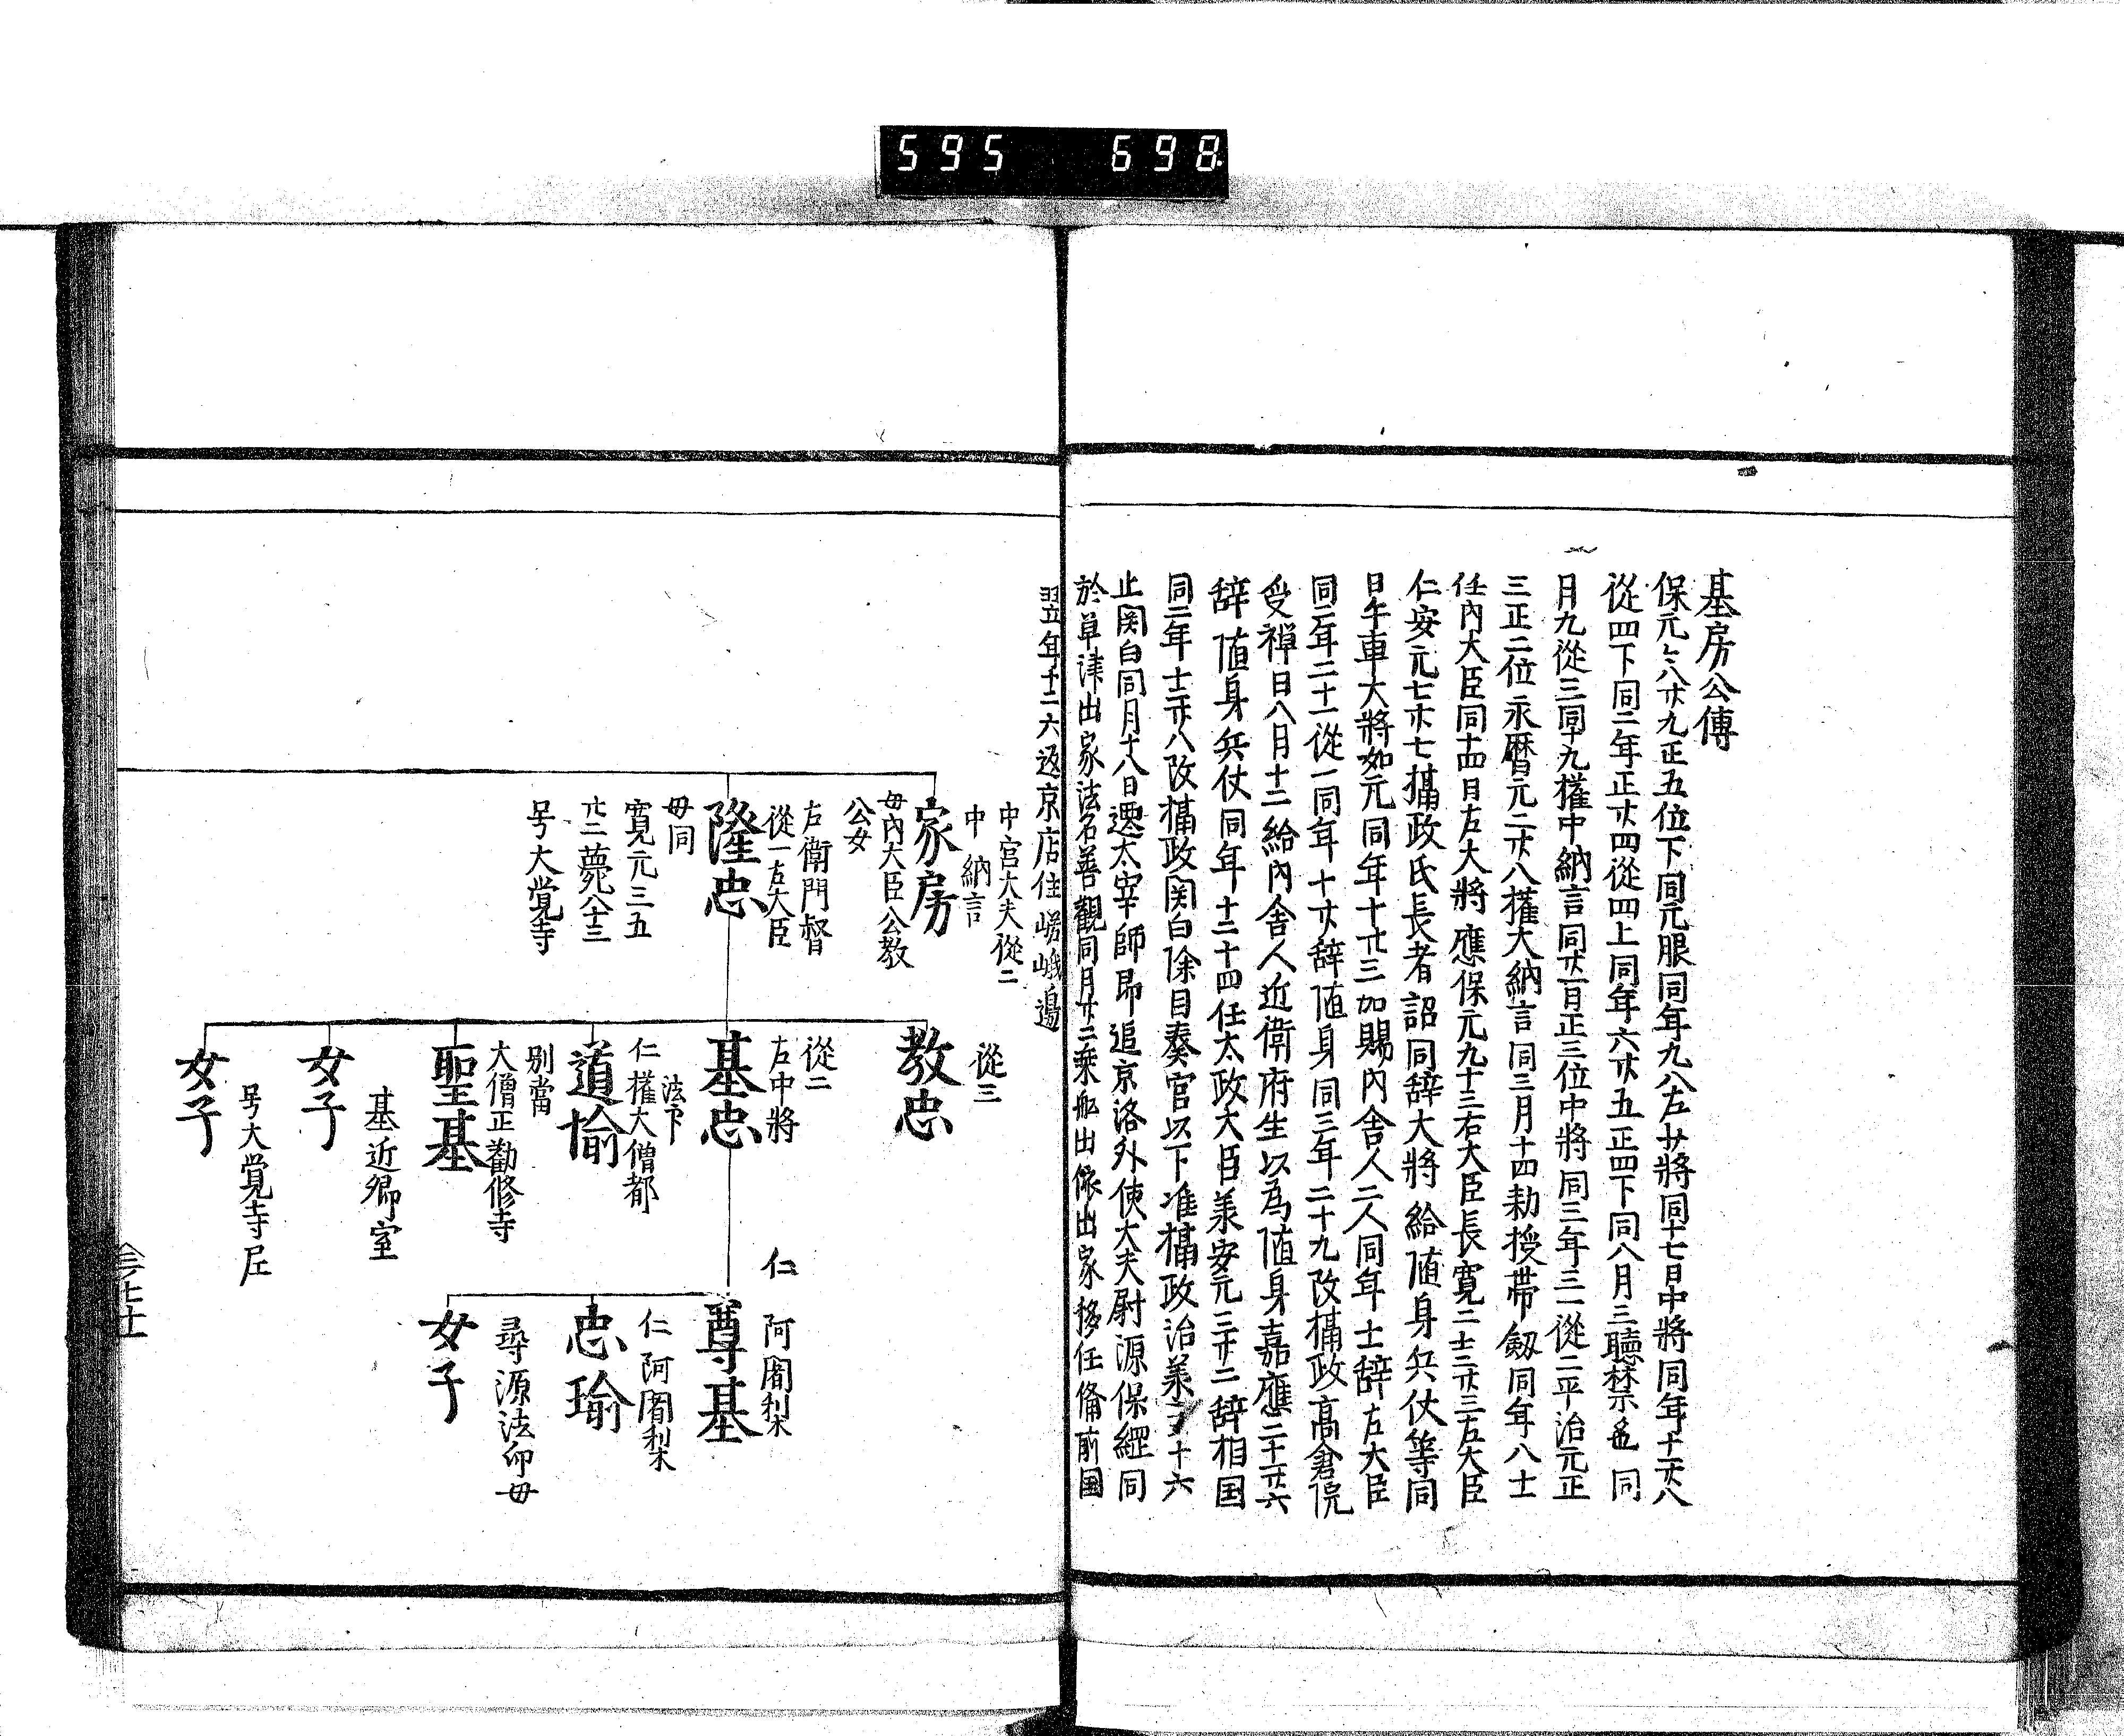 595 698
基房公傳
保元々八廿九正五位下同元服同年九八左少將同十七日中將同年十一廿八
從四下同二年正廿四從四上同年六廿五正四下同八月三聽禁色同
月九從三同十九權中納言同廿一日正三位中將同三年三一從二平治元正
三正二位永曆元二廿八權大納言同三月十四勅授帶劔同年八十一
任內大臣同十四日左大將應保元九十三右大臣長寬二士二廿三左大臣
仁安元七廿七攝政氏長者詔同辞大將給随身兵仗等同
日牛車大將如元同年十廿三加賜內舍人二人同年士辞左大臣
同二年二十一從一同年十廿辞随身同三年二十九改攝政高倉院
受禅日八月十二給內舍人近衛府生以為随身嘉應二十二廿六
辞随身兵仗同年十二十四任太政大臣美安元三廿二辞相国
同二年士二廿八改攝政関白除目奏官以下准攝政治美三十一十六
止関白同月十八日遷太宰師即追京洛外使大夫尉源保經同
於草津出家法名善觀同月廿二乘船出依出家移任俻前国
翌年十二六返京店住嵯峨邊
中宮大夫從二
中納言
家房
母內大臣公教
公女
左衛門督
從一左大臣
隆忠
母同
寛元三五
廿二薨八十三
号大覚寺
從三
教忠
從二
左中將
基忠
法下
仁權大僧都
道愉
別當
大僧正勸修寺
聖基
基近卿室
女子
号大覚寺尼
女子
仁
阿闍梨
尊基
仁阿闍梨
忠瑜
尋源法印母
女子